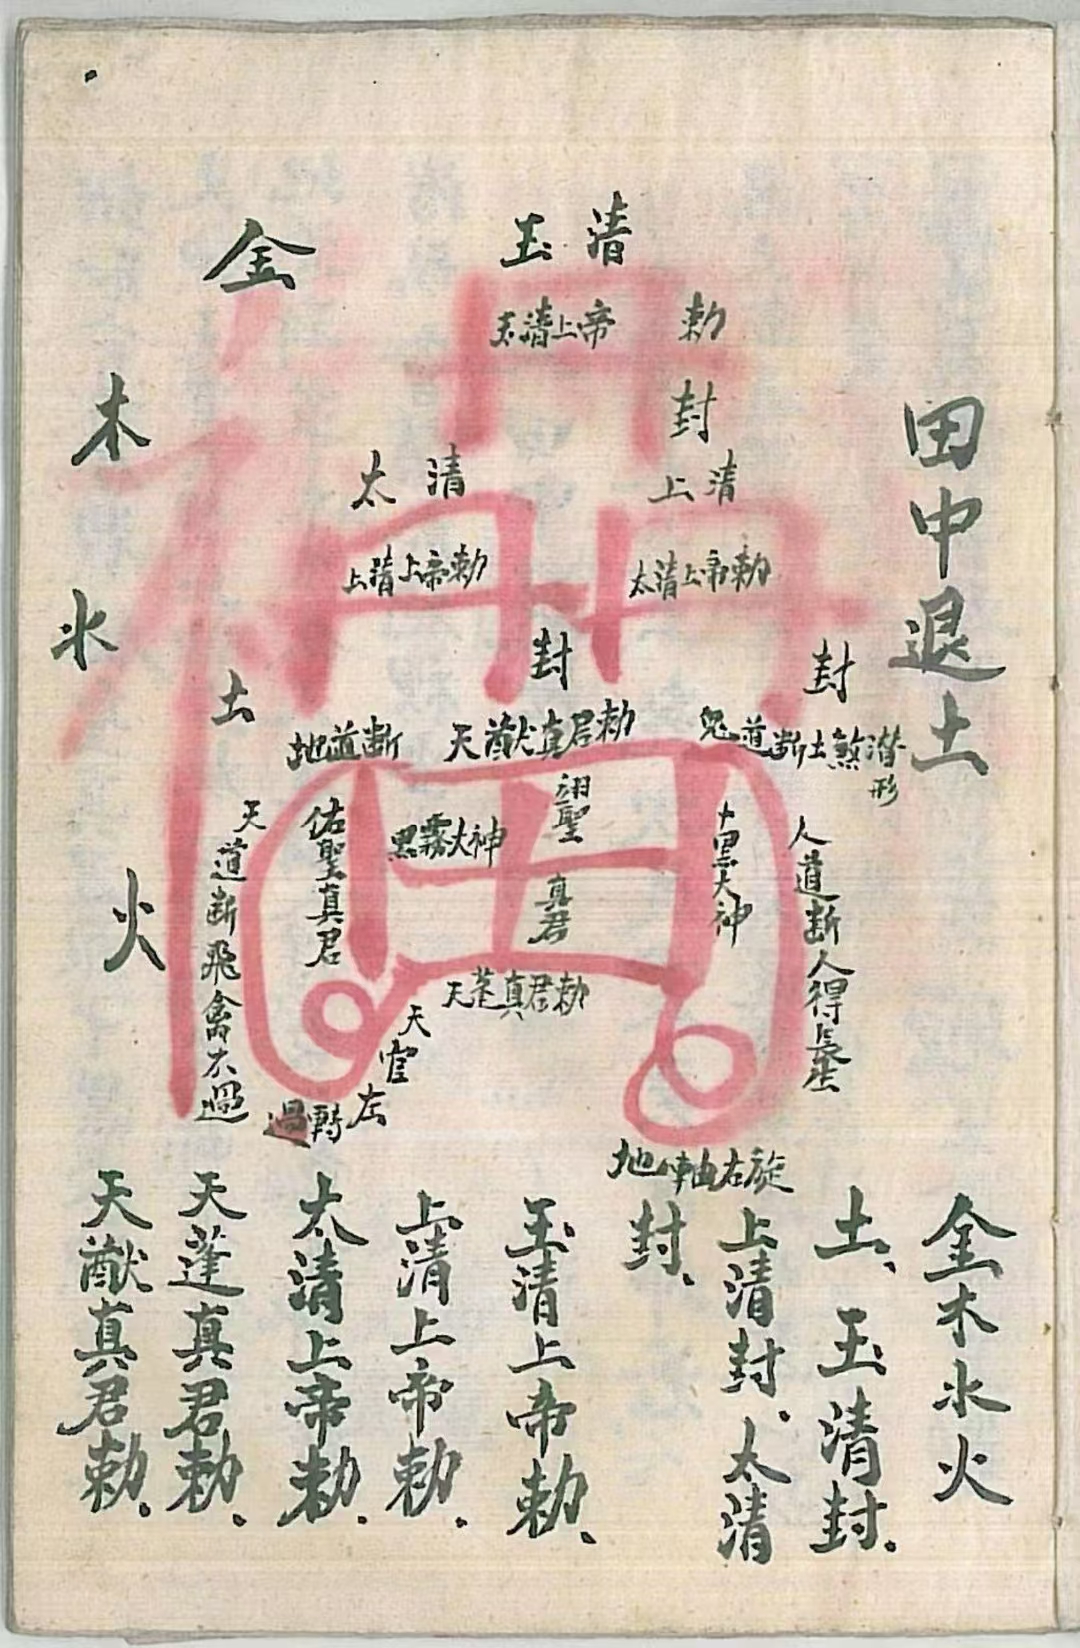 田中退土
玉清
玉清上帝
勅
封
太清
上清
上清上帝勅
太清上帝勅
封
封
金
木
水
火
土
地道断
天猷真君勅
鬼道断土煞潜形
天道断飛禽不過
佑聖真君
黑霧大神
翊聖真君
黑大神
人道断人得長生
天蓬真君勅
天官左
過轉
地軸右旋
金木水火
土、玉清封.
上清封、太清
封、
玉清上帝勅、
上清上帝勅.
太清上帝勅.
天蓬真君勅.
天猷真君勅.